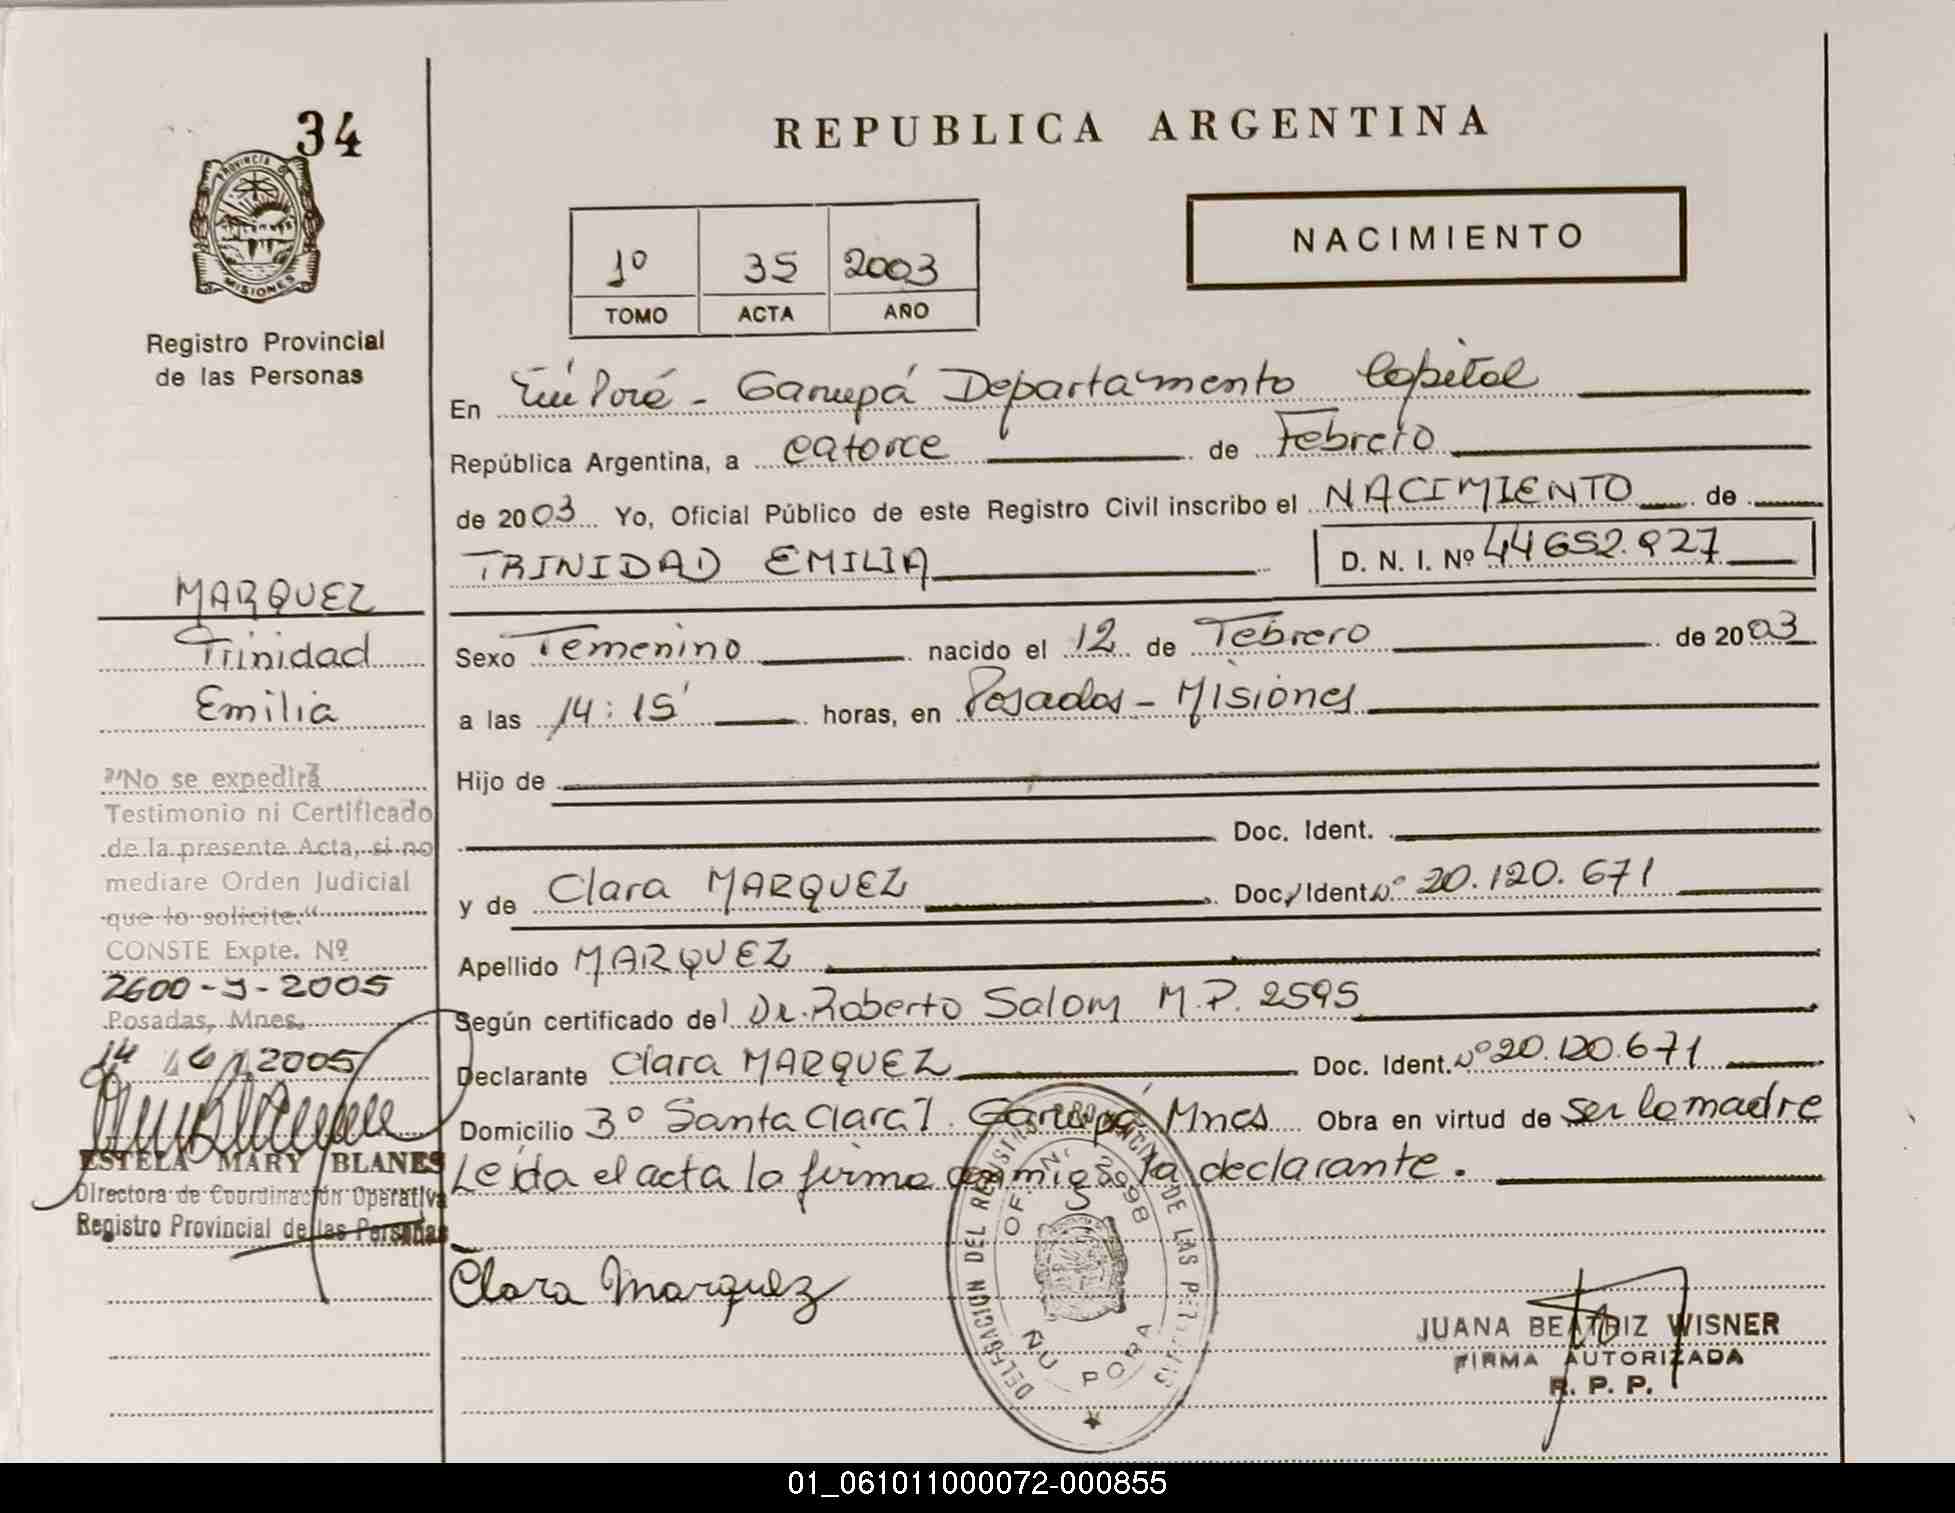 34
PROVINCIA DE
MISIONES
Registro Provincial
de las Personas
REPUBLICA ARGENTINA
1º 35 2003
TOMO ACTA AÑO
NACIMIENTO
En Ñú Porá - Garupá Departamento Capital
República Argentina, a catorce de Febrero
de 2003 Yo, Oficial Público de este Registro Civil inscribo el NACIMIENTO de
TRINIDAD EMILIA D. N. I. Nº 44652.927
Sexo Femenino nacido el 12 de Febrero de 2003
a las 14:15' horas, en Posadas - Misiones
Hijo de
Doc. Ident.
y de Clara MARQUEZ Doc. Ident. Nº 20.120.671
Apellido MARQUEZ
Según certificado del Dr. Roberto Salom M.P. 2595
Declarante Clara MARQUEZ Doc. Ident. Nº 20.120.671
Domicilio 3º Santa Clara I. Garupá Mnes Obra en virtud de ser la madre
Leída el acta la firma conmigo la declarante.
Clara Marquez
MARQUEZ
Trinidad
Emilia
"No se expedirá
Testimonio ni Certificado
de la presente Acta, si no
mediare Orden Judicial
que lo solicite."
CONSTE Expte. Nº
2600-Y-2005
Posadas, Mnes.
14 2005
ESTELA MARY BLANES
Directora de Coordinación Operativa
Registro Provincial de las Personas
DELEGACION DEL REGISTRO PROVINCIAL DE LAS PERSONAS
OF. Nº 2098
ÑU PORA
JUANA BEATRIZ WISNER
FIRMA AUTORIZADA
R. P. P.
01_061011000072-000855